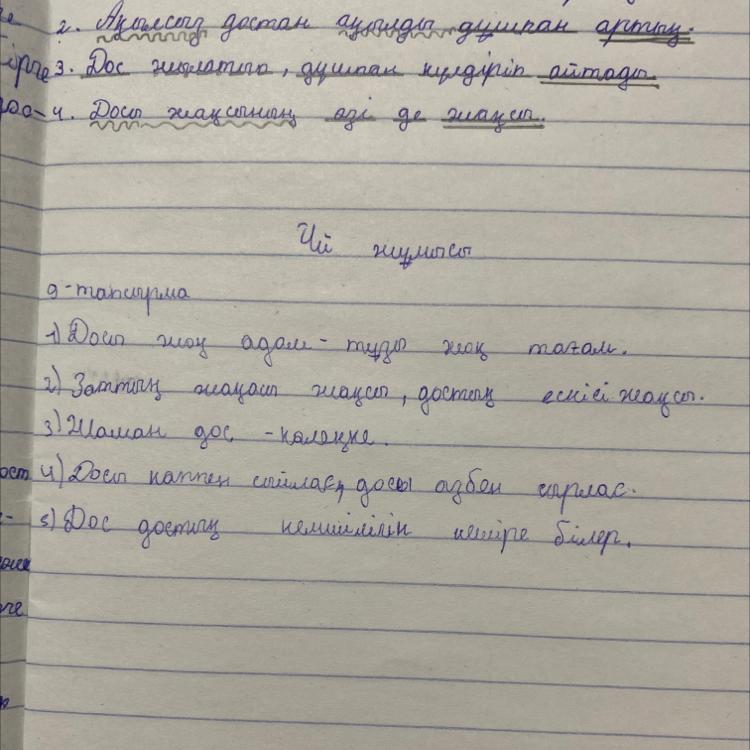 2. Ақылсыз достан ақылды душпан артық.
3. Дос жылатып, душпан күлдіріп айтады.
4. Досы жақсының өзі де жақсы.
Үй жұмысы
9-тапсырма
1) Досы жоқ адам - тұзы жоқ тағам.
2) Заттың жаңасы жақсы, достың ескісі жақсы.
3) Жаман дос - көлеңке.
4) Досы көппен сыйлас, досы азбен сырлас.
5) Дос достың кемшілігін кешіре білер.